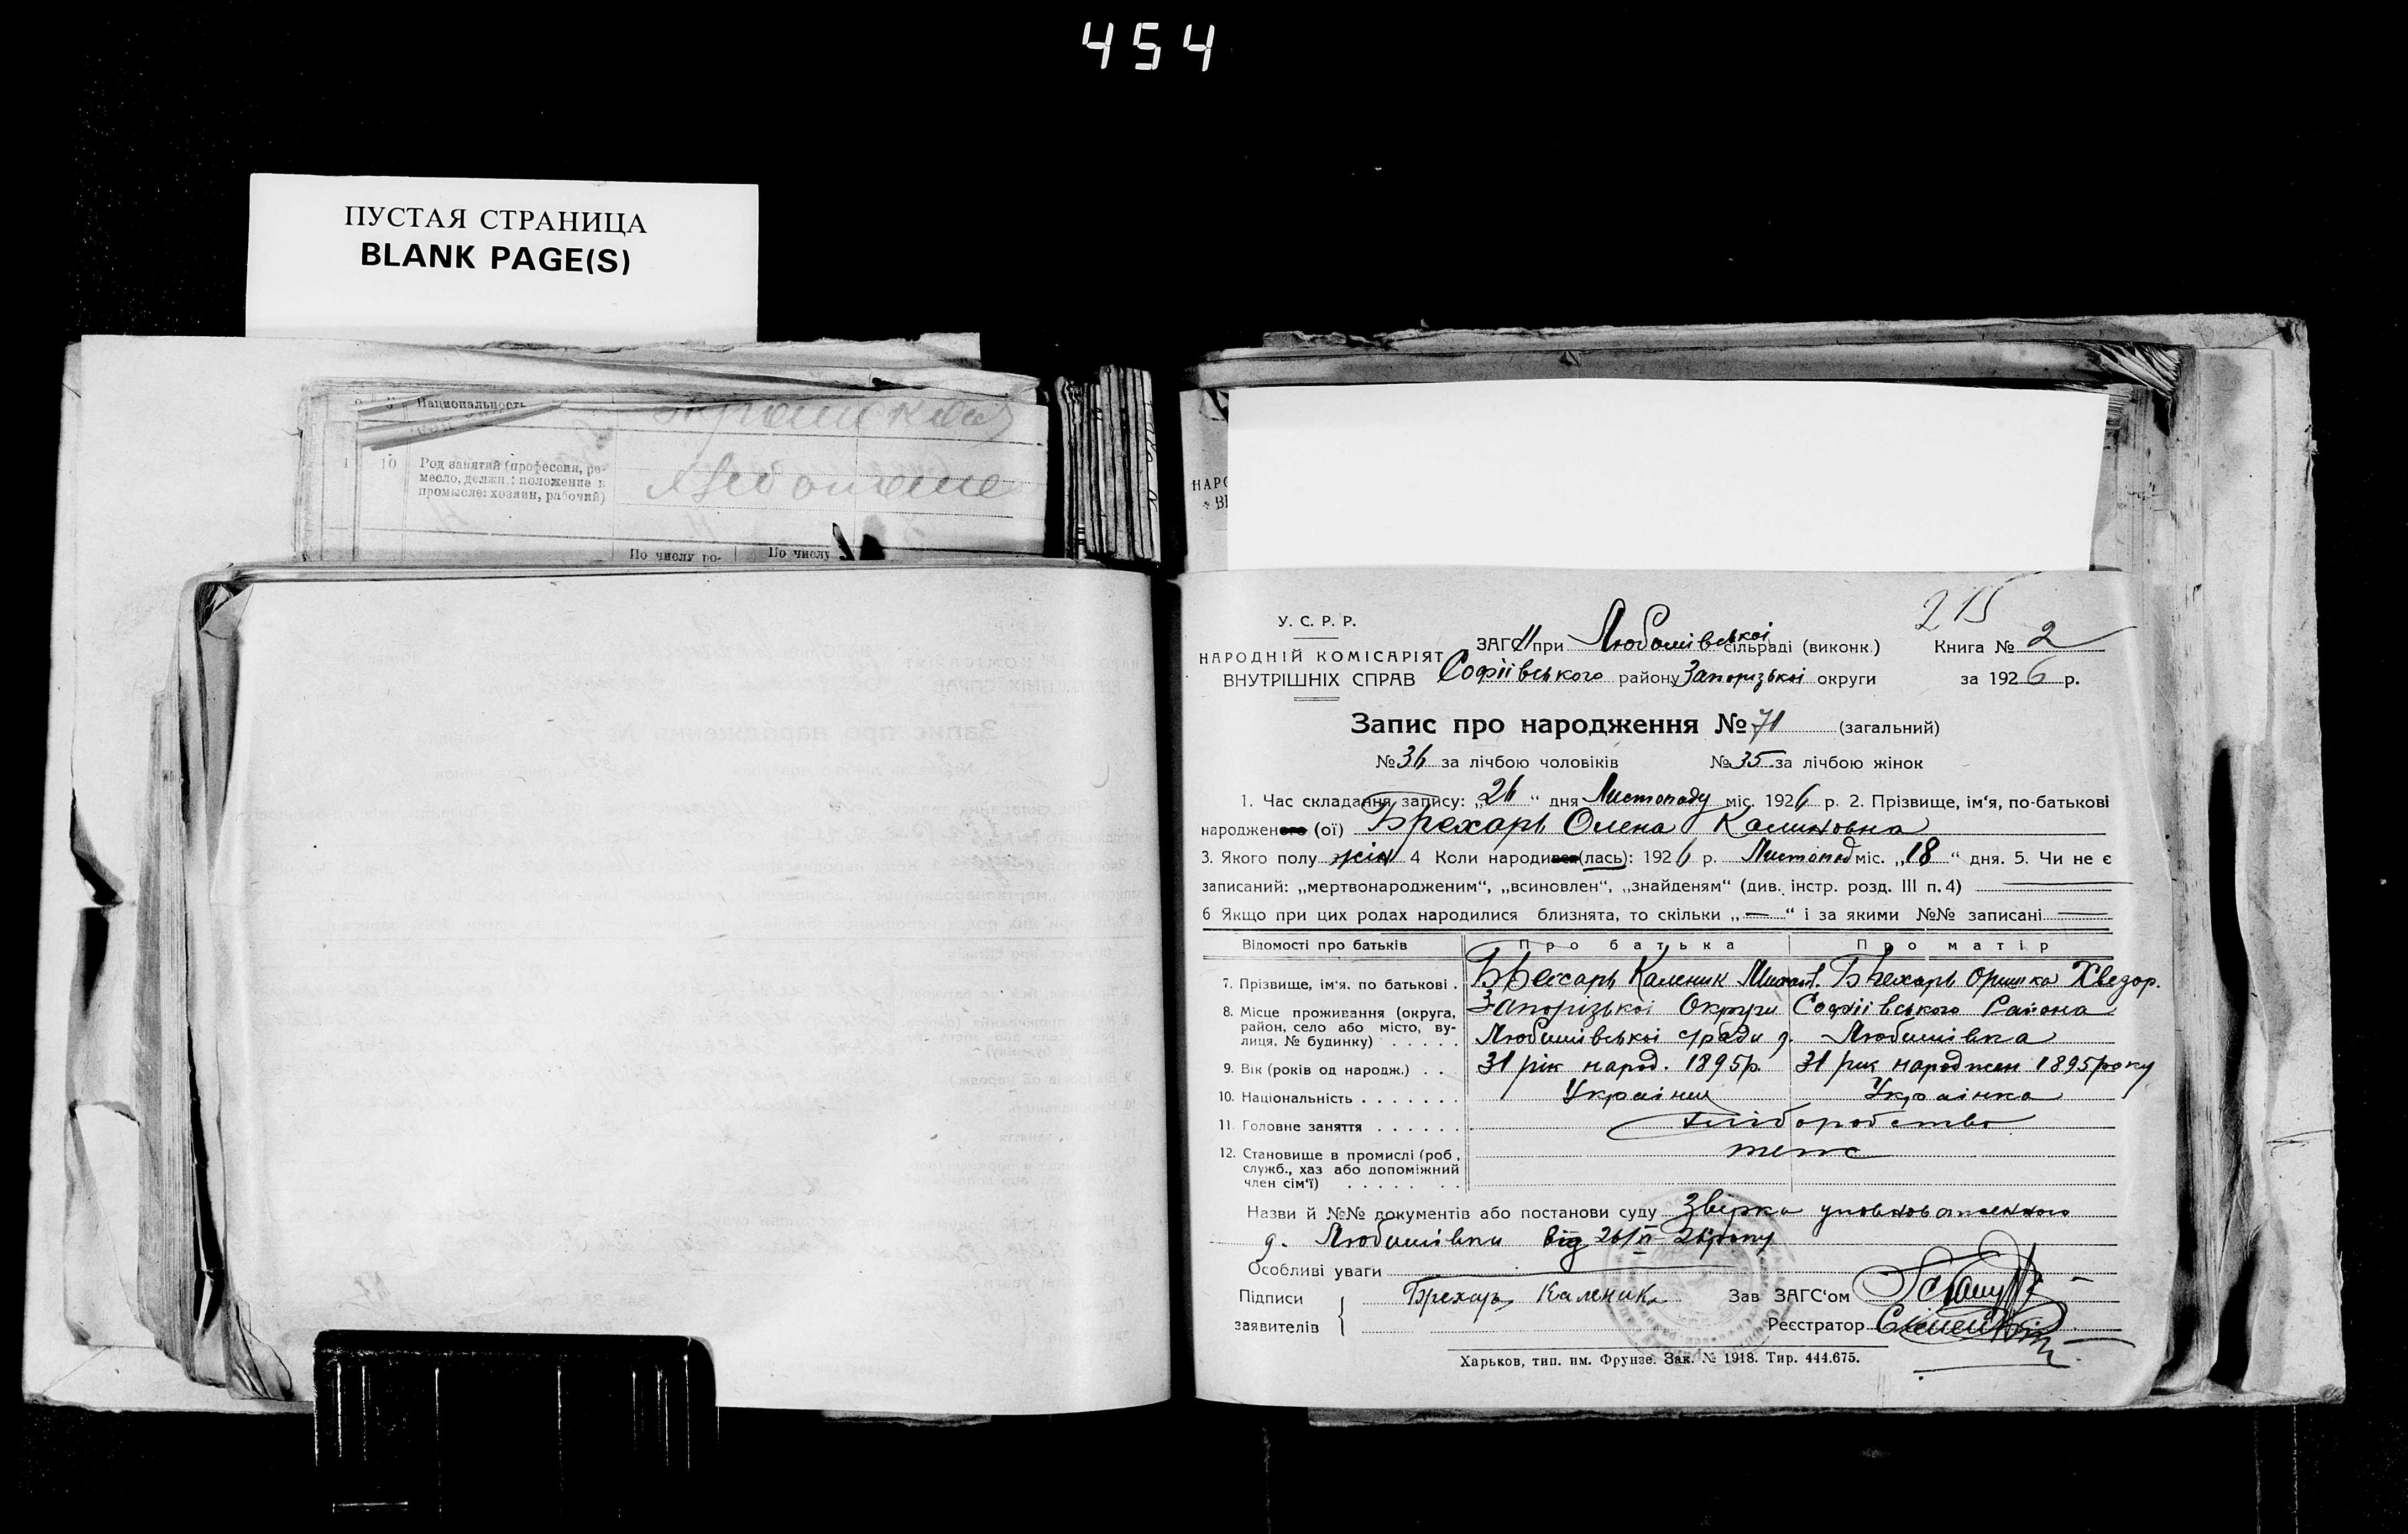 454
ПУСТАЯ СТРАНИЦА
BLANK PAGE(S)
Национальность
10 Род занятий (профессия, ре-
месло, должн.; положение в
промысле: хозяин, рабочий)
По числу ро- По числу
215
У. С. Р. Р.
НАРОДНІЙ КОМІСАРІЯТ
ВНУТРІШНІХ СПРАВ
ЗАГС при Любомівської сільраді (виконк.) Книга № 2
Софіївського району Запорізької округи за 1926 р.
Запис про народження № 71 (загальний)
№ 36 за лічбою чоловіків № 35 за лічбою жінок
1. Час складання запису: „26“ дня Листопаду міс. 1926 р. 2. Прізвище, ім‘я, по-батькові
народженого (ої) Брехарь Олена Калиновна
3. Якого полу жін 4 Коли народився (лась): 1926 р. Листопад міс. „18“ дня. 5. Чи не є
записаний: „мертвонародженим“, „всиновлен“, „знайденям“ (див. інстр. розд. III п. 4) —
6 Якщо при цих родах народилися близнята, то скільки „—“ і за якими №№ записані —
Відомості про батьків Про батька Про матір
7. Прізвище, ім‘я. по батькові . Брехарь Каленик Брехарь Оришка Хведор.
8. Місце проживання (округа, Запорізької Округи Софіївського Района
район, село або місто, ву-
лиця, № будинку) . . . . . Любимівської с/ради д. Любимівка
9. Вік (років од народж.) . . 31 рік народ. 1895 р. 31 рик народжен 1895 року
10. Національність . . . . . . . Українец Українка
11. Головне заняття . . . . . . . хліборобство
12. Становище в промислі (роб., теж
служб., хаз або допоміжний
член сім‘ї) . . . . . . .
Назви й №№ документів або постанови суду Звірка уповноваженного
д. Любимівки від 26/XI 26 року
Особливі уваги
Підписи
заявителів { Брехарь Каленик Зав ЗАГС‘ом
Реєстратор
Харьков, тип. им. Фрунзе. Зак. № 1918. Тир. 444.675.